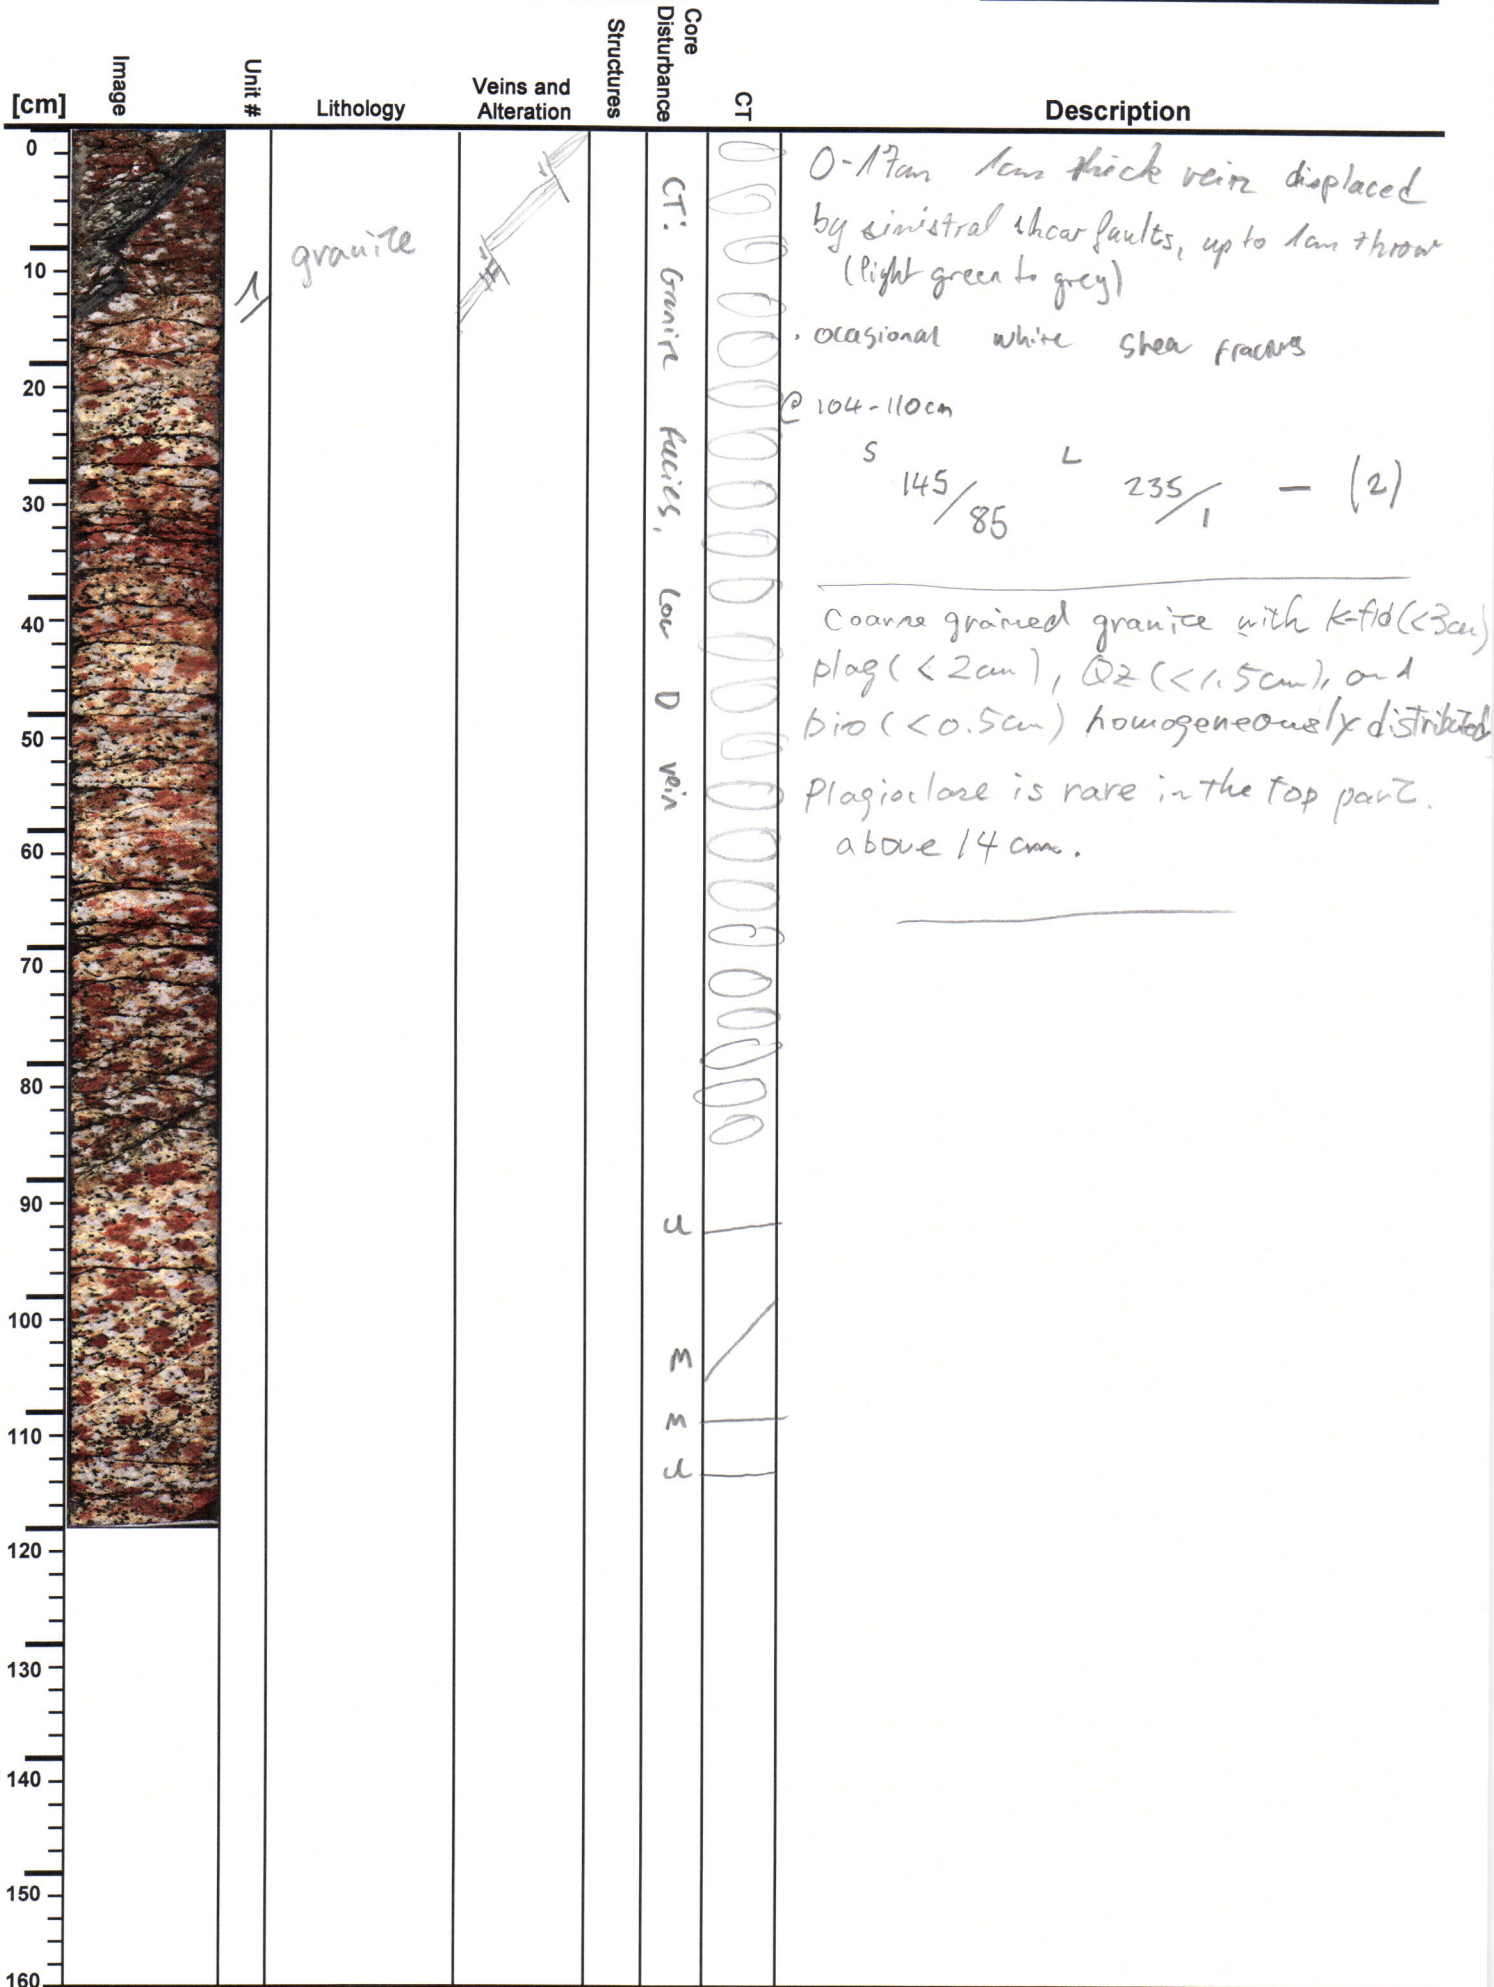 [cm]
Image
Unit #
Lithology
Veins and
Alteration
Structures
Core
Disturbance
CT
Description
0
10
20
30
40
50
60
70
80
90
100
110
120
130
140
150
160
1
granite
CT: Granite facies, Low D vein
U
M
M
U
0-17cm 1cm thick vein displaced
by sinistral shear faults, up to 1cm throw
(light green to grey)
. ocasional white shear
@ 104-110cm
S 145/85 L 235/1 - (2)
Coarse grained granite with k-fld (<3cm)
plag (<2cm), Qz (<1.5cm), and
bio (<0.5cm) homogeneously distributed
Plagioclase is rare in the top part.
above 14 cm.